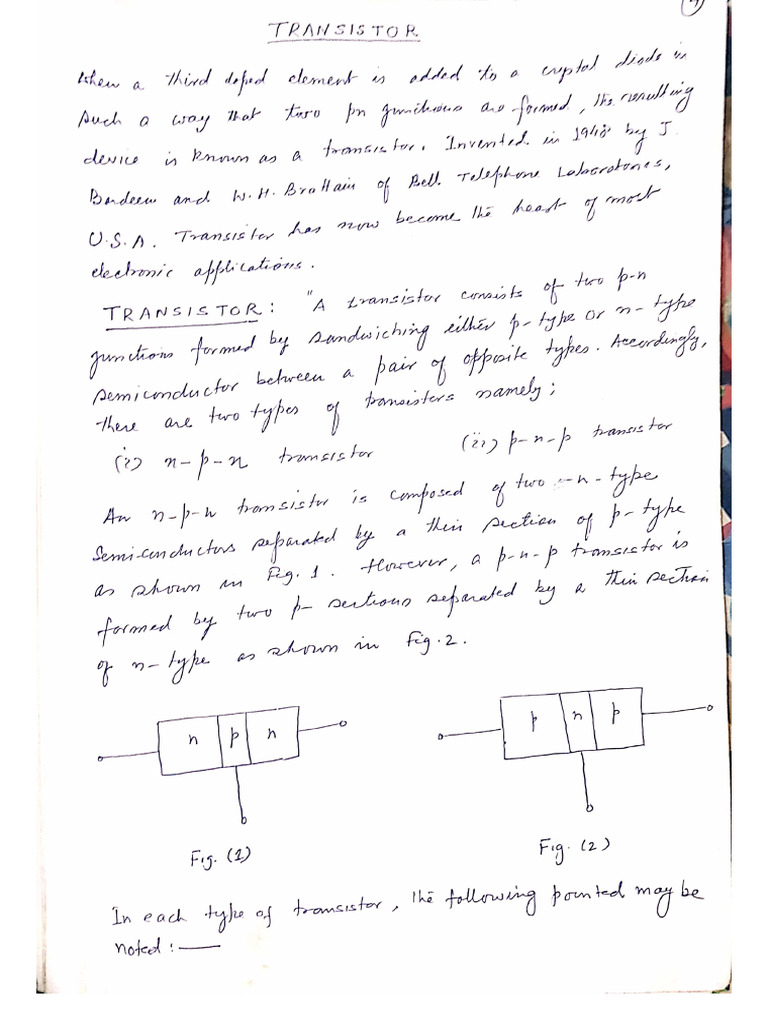 TRANSISTOR
When a third doped element is added to a crystal diode in
such a way that two pn junctions are formed, the resulting
device is known as a transistor. Invented in 1948 by J.
Bardeen and W.H. Brattain of Bell Telephone Laboratories,
U.S.A. Transistor has now become the heart of most
electronic applications.
TRANSISTOR: "A transistor consists of two p-n
junctions formed by sandwiching either p-type or n-type
semiconductor between a pair of opposite types. Accordingly,
there are two types of transistors namely;
(i) n-p-n transistor (ii) p-n-p transistor
An n-p-n transistor is composed of two -n-type
Semi-conductors separated by a thin section of p-type
as shown in Fig. 1. However, a p-n-p transistor is
formed by two p- sections separated by a thin section
of n-type as shown in Fig. 2.
n p n
p n p
Fig. (1)
Fig. (2)
In each type of transistor, the following pointed may be
noted : —